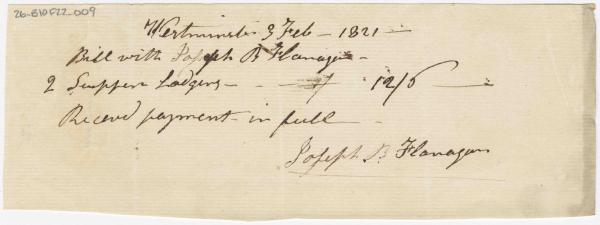 26-B10F22-009
Westminster 3 Feb - 1821 -
Bill with Joseph B Flanagan -
2 Suppers Lodgings - - 12/6 -
Receved payment - in full -
Joseph B Flanagan